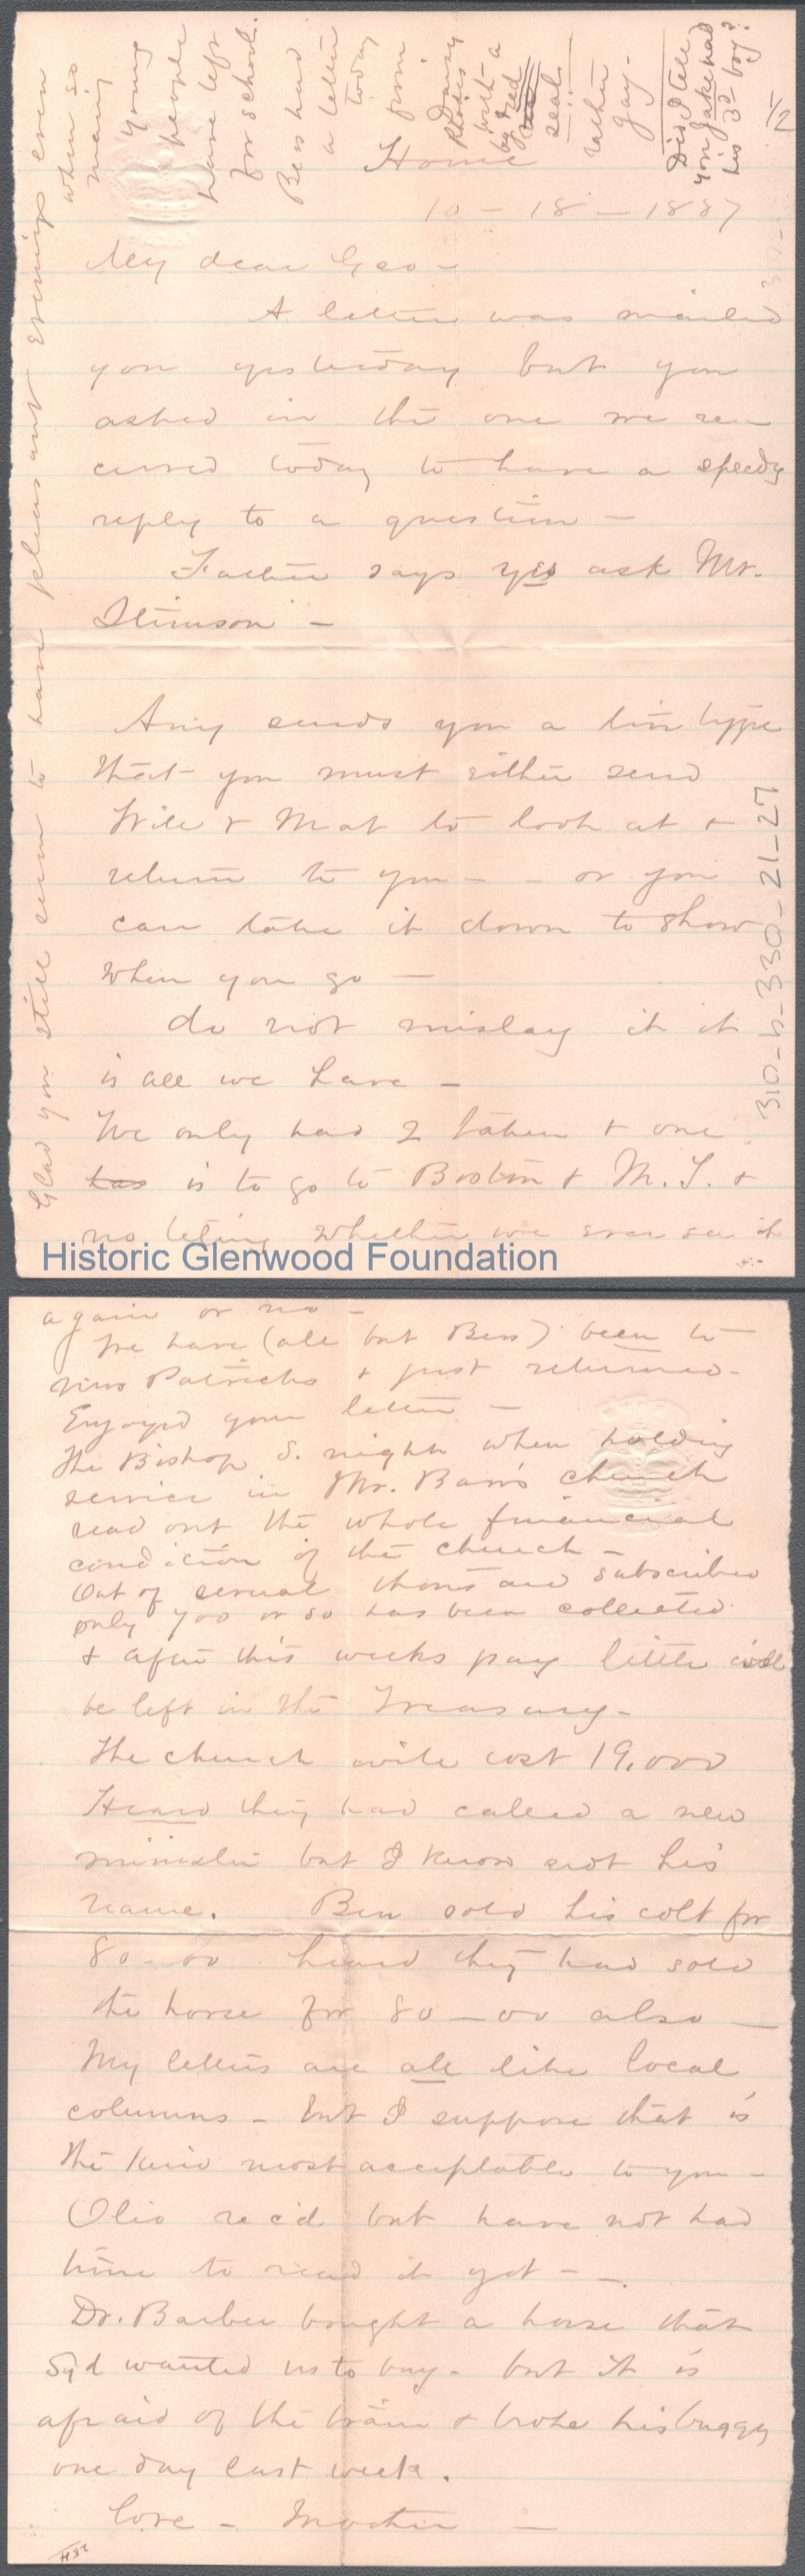 Home
10 - 18 - 1887
My dear Geo -
A letter was mailed
you yesterday but you
asked in the one we re-
ceived today to have a speedy
reply to a question -
Father says yes ask Mr.
Stimson -
Amy sends you a tin type
that you must either send
Will & Mat to look at &
return to you - - or you
can take it down to show
when you go -
do not mislay it it
is all we have -
We only had 2 taken & one
has is to go to Boston & N. Y. &
no telling whether we ever see it
Glad you still seem to have pleasant evenings even
when so
many
young
people
have left
for school.
Bess had
a letter
today
from
Daisy
Rhodes
with a
big red
seal!!
rather
gay -
Did I tell
you Jake had
his 3d boy?
1/2
310-h-330-21-27
Historic Glenwood Foundation
again or no -
We have (all but Bess) been to
Miss Patricks & just returned -
Enjoyed your letter -
The Bishop S. night when holding
service in Mr. Barr's church
read out the whole financial
condition of the church -
Out of several thousand subscribed
only 700 or so has been collected
& after this weeks pay little will
be left in the Treasury -
The church will cost 19,000
Heard they had called a new
minister but I know not his
name. Ben sold his colt for
80-00 heard they had sold
the horse for 80-00 also -
My letters are all like local
columns - but I suppose that is
the kind most acceptable to you -
Olio rec'd but have not had
time to read it yet - -
Dr. Barber bought a horse that
Syd wanted us to buy - but it is
afraid of the train & broke his buggy
one day last week.
Love - Mother -